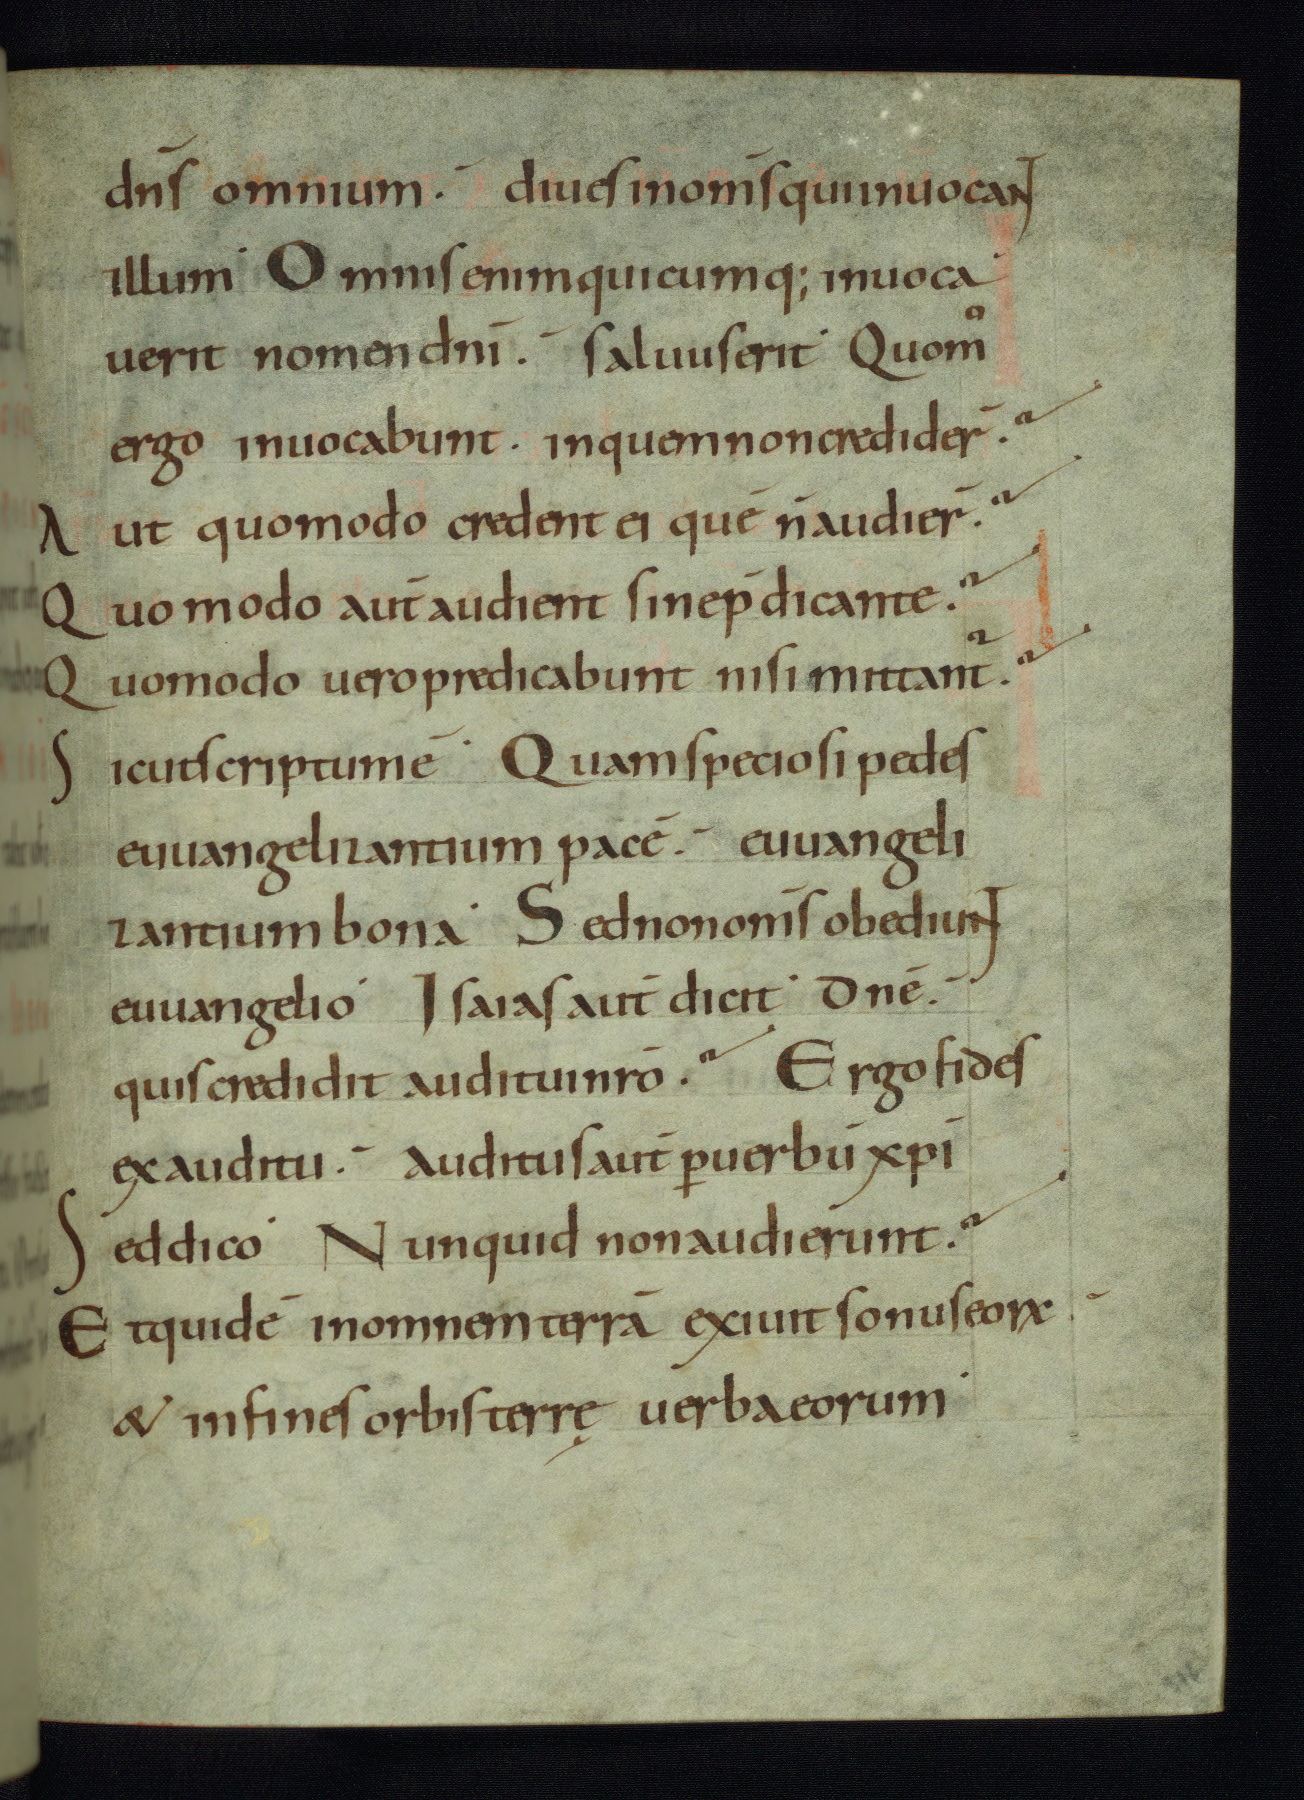 dn̄s omnium. diues in om̄s qui inuocant
illum Omnis enim quicumq; inuoca
uerit nomen dn̄i. saluus erit Quomo
ergo inuocabunt. in quem non credider̄.
Aut quomodo credent ei quē n̄ audier̄.
Quomodo aut̄ audient sine p̄dicante.
Quomodo uero predicabunt nisi mittant̄.
Sicut scriptum ē Quam speciosi pedes
euuangelizantium pacē. euuangeli
zantium bona Sed non om̄s obediunt
euuangelio Isaias aut̄ dicit Dn̄e.
quis credidit auditui nr̄o. Ergo fides
ex auditu. auditus aut̄ ꝑ uerbū xp̄i
Sed dico Nunquid non audierunt.
Et quidē in omnem terrā exiuit sonus eoꝝ
& in fines orbis terrę uerba eorum